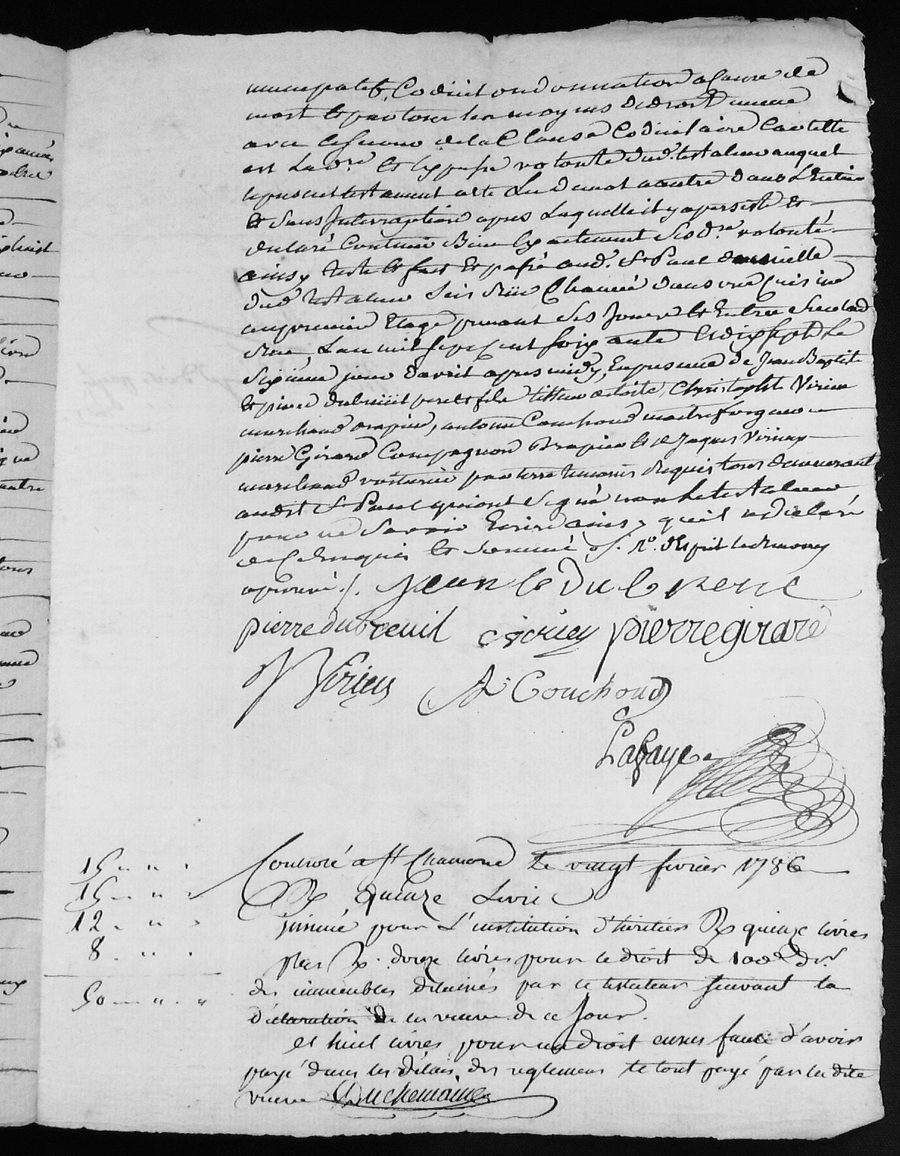 nuncupatif, Codicil ou donnation a cause de
mort et par tous les moyens de droit
avec le de la Clause Codicilaire Car telle
est La dre et Expresse volonté dud. testateur auquel
le present testament a été Lu de mot a autre dans L'Entier
et Sans Interruption apres Laquelle il y a persisté et
declaré Contenir Bien Exactement Ses dres volonté
ainsy testé et fait et passé aud. St Paul domicille
dud. testateur Scis Rüe Chanée dans une Cuisine
au premier Etage prenant Ses Jours et Entrée Sur lad
Rüe, L'an mil sept Cent soixante et dixsept Le
Sixieme jour d'avril apres midy, En presence de Jean Baptiste
et pierre dubreüil pere et fils, Christophle Virieu
marchand drapier, antoine Couchoud maitre forgeur
pierre Girard Compagnon drapier et Jaques Virieux
marchand voiturier par terre temoins Requis tous demeurant
audit St Paul qui ont Signé non le testateur
pour ne Savoir Ecrire ainsy qu'il a declaré
de ce Enquis et Sommé
aprouvé ./.
pierre dubreuil pierre girard
J Virieu A Couchoud
Lafaye
15 " " "
15 " " "
12 " " "
8 " " "
50 " " "
Controlé a St Chamond le vingt fevrier 1786
R quinze Livres
jnsinué pour L'institution d'heritiers R quinze livres
plus R. douze livres pour le droit de 100e dr.
des immeubles delaissés par ce testateur suivant la
declaration de la veuve de ce Jour.
et huit livres pour un droit en sus faute d'avoir
payé dans les delais des reglemens le tout payé par la dite
veuve Duchemaine